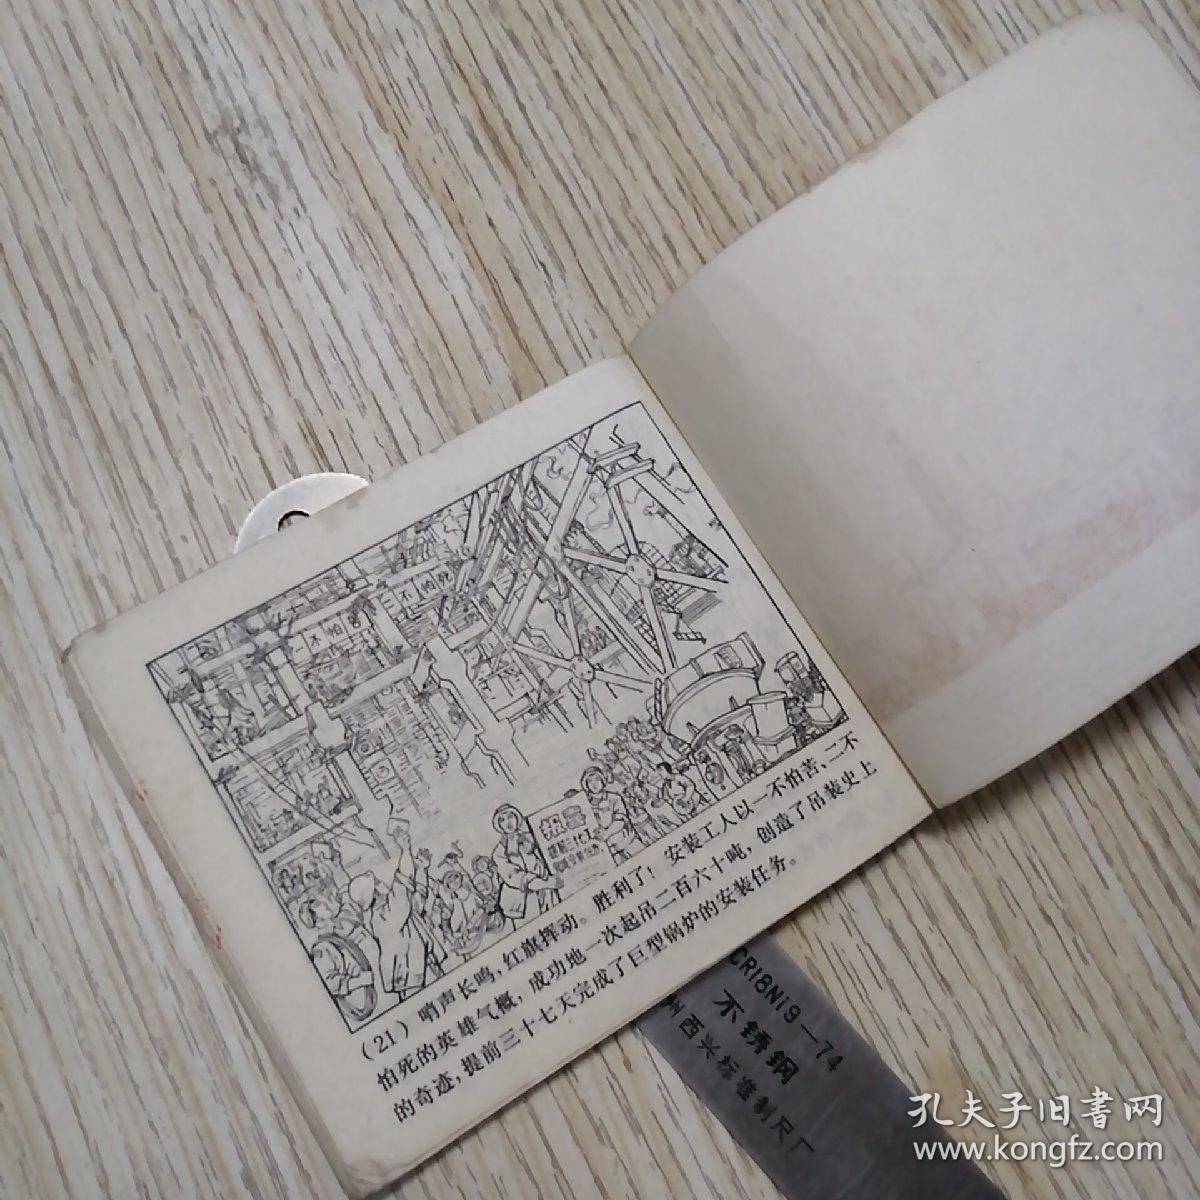 一不怕苦
二不怕死
报喜
(21) 哨声长鸣，红旗挥动。胜利了！安装工人以一不怕苦、二不
怕死的英雄气概，成功地一次起吊二百六十吨，创造了吊装史上
的奇迹，提前三十七天完成了巨型锅炉的安装任务。
CR18Ni9—74
不锈钢
西兴标准制尺厂
孔夫子旧书网
www.kongfz.com